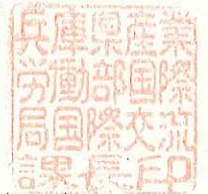 兵庫県産業
労働部国際
局国際交流
課長印